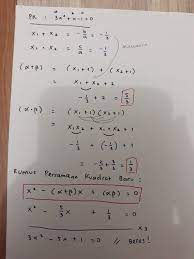 PK : 3x² + x - 1 = 0
x₁ + x₂ = -b/a = -1/3
x₁ · x₂ =
(α+β) = (x₁+1) + (x₂+1)
= x₁ + x₂ + 2
-1/3 + 2 = 5/3
(α·β) = (x₁+1)(x₂+1)
= x₁x₂ + x₁ + x₂ + 1
= 1/3
Rumus Persamaan Kuadrat Baru :
x² - (α+β)x + (αβ) = 0
x² - 5/3 x + 1/3 = 0
x3
3x² - 5x + 1 = 0 // BERES!